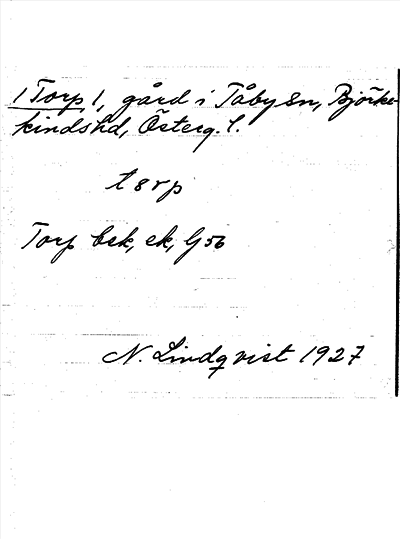 1 Torp 1, gård i Tåby sn, Björke-
kinds hd, Österg. l.
tørp
Torp bsk, ek, G 56
N. Lindqvist 1927